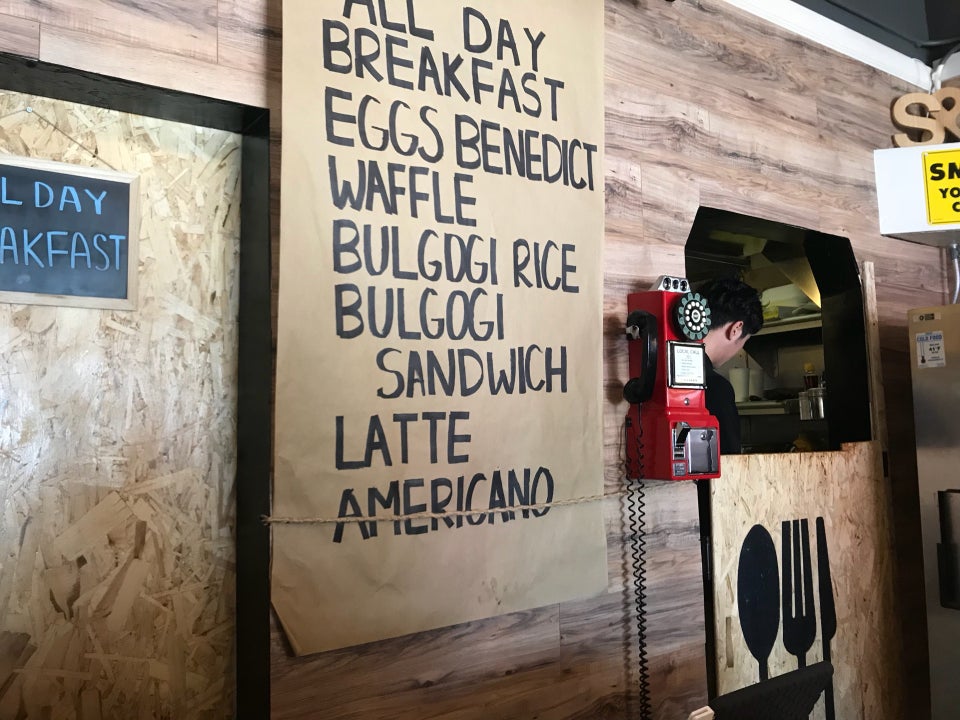 ALL DAY
BREAKFAST
EGGS BENEDICT
WAFFLE
BULGOGI RICE
BULGOGI
SANDWICH
LATTE
AMERICANO
L DAY
AKFAST
LOCAL CALL
S&
SM
YO
C
COLD FOOD